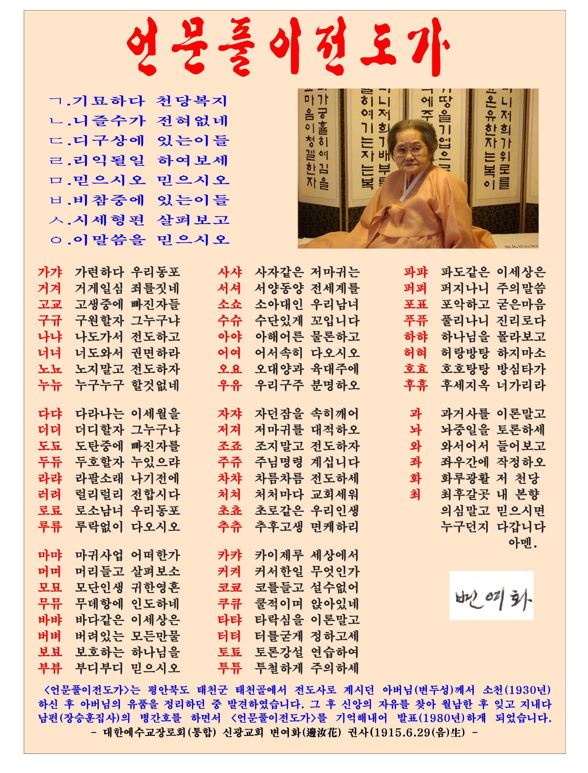 언문풀이전도가
ㄱ.기묘하다 천당복지
ㄴ.니즐수가 전혀없네
ㄷ.디구상에 있는이들
ㄹ.리익될일 하여보세
ㅁ.믿으시오 믿으시오
ㅂ.비참중에 있는이들
ㅅ.시세형편 살펴보고
ㅇ.이말씀을 믿으시오
가갸 가련하다 우리동포
거겨 거게일심 죄를짓네
고교 고생중에 빠진자들
구규 구원할자 그누구냐
나냐 나도가서 전도하고
너녀 너도와서 권면하라
노뇨 노지말고 전도하자
누뉴 누구누구 할것없네
다댜 다라나는 이세월을
더뎌 더디할자 그누구냐
도됴 도탄중에 빠진자를
두듀 두호할자 누있으랴
라랴 라팔소래 나기전에
러려 럴리럴리 전합시다
로료 로소남녀 우리동포
루류 루락없이 다오시오
마먀 마귀사업 어떠한가
머며 머리들고 살펴보소
모묘 모단인생 귀한영혼
무뮤 무데항에 인도하네
바뱌 바다같은 이세상은
버벼 버려있는 모든만물
보뵤 보호하는 하나님을
부뷰 부디부디 믿으시오
사샤 사자같은 저마귀는
서셔 서양동양 전세계를
소쇼 소아대인 우리남녀
수슈 수단있게 꼬입니다
아야 아해어른 물론하고
어여 어서속히 다오시오
오요 오대양과 육대주에
우유 우리구주 분명하오
자쟈 자던잠을 속히깨어
저져 저마귀를 대적하오
조죠 조지말고 전도하자
주쥬 주님명령 계십니다
차챠 차름차름 전도하세
처쳐 처처마다 교회세워
초쵸 초로같은 우리인생
추츄 추후고생 면케하리
카캬 카이제루 세상에서
커켜 커서한일 무엇인가
코쿄 코를들고 설수없어
쿠큐 쿨적이며 앉아있네
타탸 타락심을 이론말고
터텨 터를굳게 정하고세
토툐 토론강설 연습하여
투튜 투철하게 주의하세
파퍄 파도같은 이세상은
퍼펴 퍼지나니 주의말씀
포표 포악하고 굳은마음
푸퓨 풀리나니 진리로다
하햐 하나님을 몰라보고
허혀 허랑방탕 하지마소
호효 호호탕탕 방심타가
후휴 후세지옥 너가리라
과 과거사를 이론말고
놔 놔중일을 토론하세
와 와서어서 들어보고
좌 좌우간에 작정하오
화 화루광활 저 천당
최 최후갈곳 내 본향
의심말고 믿으시면
누구던지 다갑니다
아멘.
변여화
<언문풀이전도가>는 평안북도 태천군 태천골에서 전도사로 계시던 아버님(변두성)께서 소천(1930년)
하신 후 아버님의 유품을 정리하던 중 발견하였습니다. 그 후 신앙의 자유를 찾아 월남한 후 잊고 지내다
남편(장승훈집사)의 병간호를 하면서 <언문풀이전도가>를 기억해내어 발표(1980년)하게 되었습니다.
- 대한예수교장로회(통합) 신광교회 변여화(邊汝花) 권사(1915.6.29(음)生) -